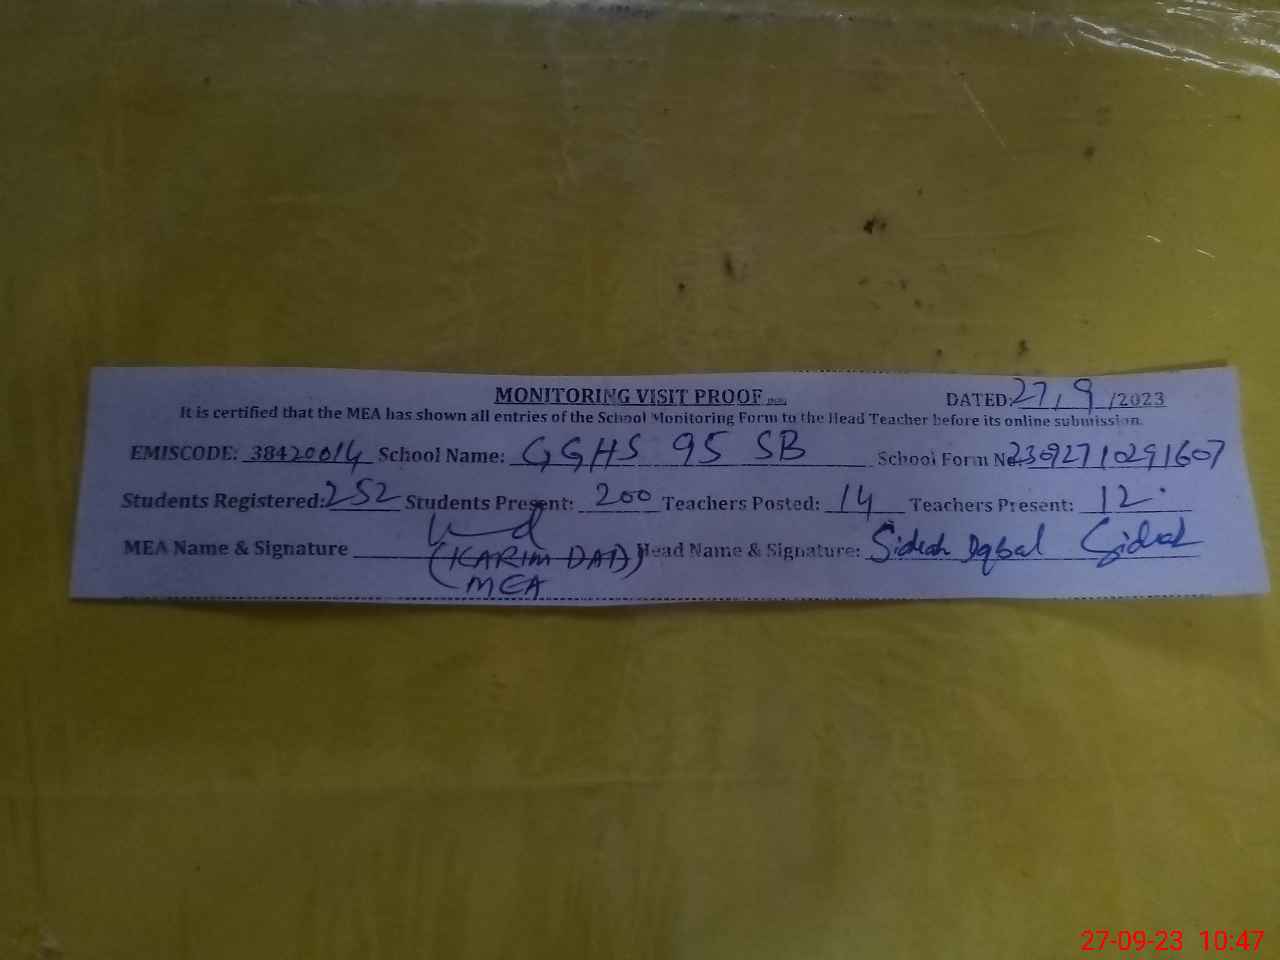 MONITORING VISIT PROOF
DATED: 27/9/2023
It is certified that the MEA has shown all entries of the School Monitoring Form to the Head Teacher before its online submission.
EMISCODE: 38420014 School Name: GGHS 95 SB School Form No. 23092710291607
Students Registered: 252 Students Present: 200 Teachers Posted: 14 Teachers Present: 12
MEA Name & Signature (KARIM DAD) Head Name & Signature: Sidrah Iqbal Sidrah
MEA
27-09-23 10:47